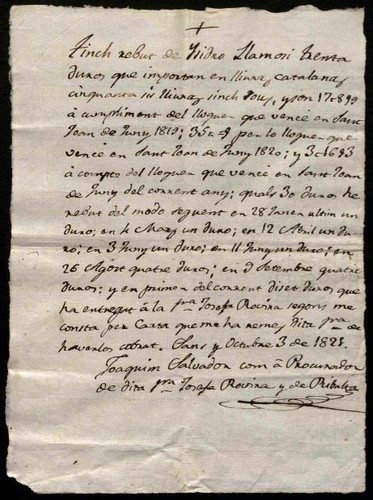 Tinch rebut de Ysidro Llamosi trenta
duros que importan en lliuras catalanas
cinquanta sis lliuras sinch sous, y son 17
à cumpliment del lloguer que vencé en Sant
Joan de Juny 1819; 35 per lo lloguer que
vencé en Sant Joan de Juny 1820; y 3
à compte del lloguer que vencé en Sant Joan
de Juny del corrent any; quals 30 duros he
rebut del modo seguent en 28 Janer ultim un
duro; en 4 Mars un duro; en 12 Abril un du
ro; en 3 Juny un duro; en 11 Juny un duro; en
26 Agost quatre duros; en 9 Setembre quatre
duros; y en primer del corrent diset duros que
ha entregat à la Sra Josefa Rovira segons me
consta per Carta que me ha remes dita Sra de
haverlos cobrat. Sans y Octubre 3 de 1821.
Joaquim Salvador com à Procurador
de dita Sra Josefa Rovira y de Ribalta